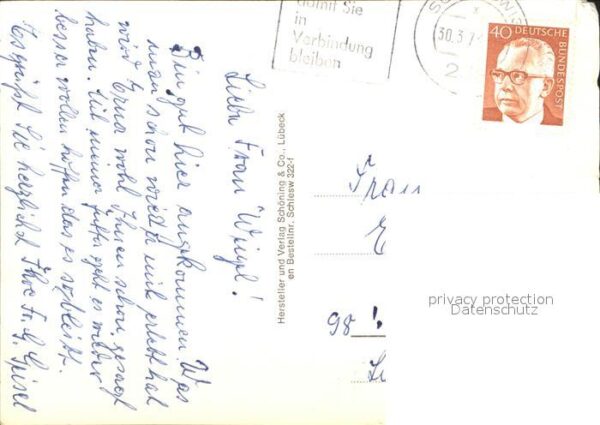 damit Sie
in
Verbindung
bleiben
30.3.7
2
40 DEUTSCHE
BUNDESPOST
Liebe Frau Weigl!
Bin gut hier angekommen. Was
man schon wieder mit erlebt hat
wird Erna wohl Ihnen schon gesagt
haben. Mit meiner geht es wieder
besser wollen hoffen das es so bleibt.
Es grüßt Sie herzlichst Ihre Fr. G. Geisel
Hersteller und Verlag Schöning & Co., Lübeck
en Bestellnr. Schlesw 322-f
Frau
E
98
privacy protection
Datenschutz